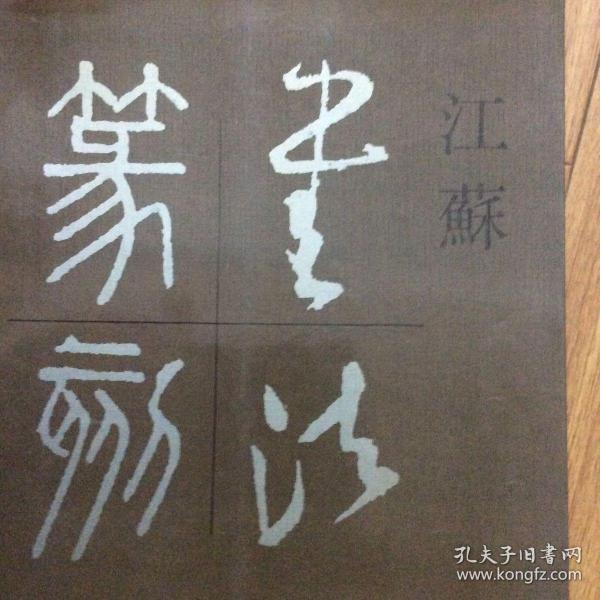 江蘇
書法
篆刻
孔夫子旧書网
www.kongfz.com